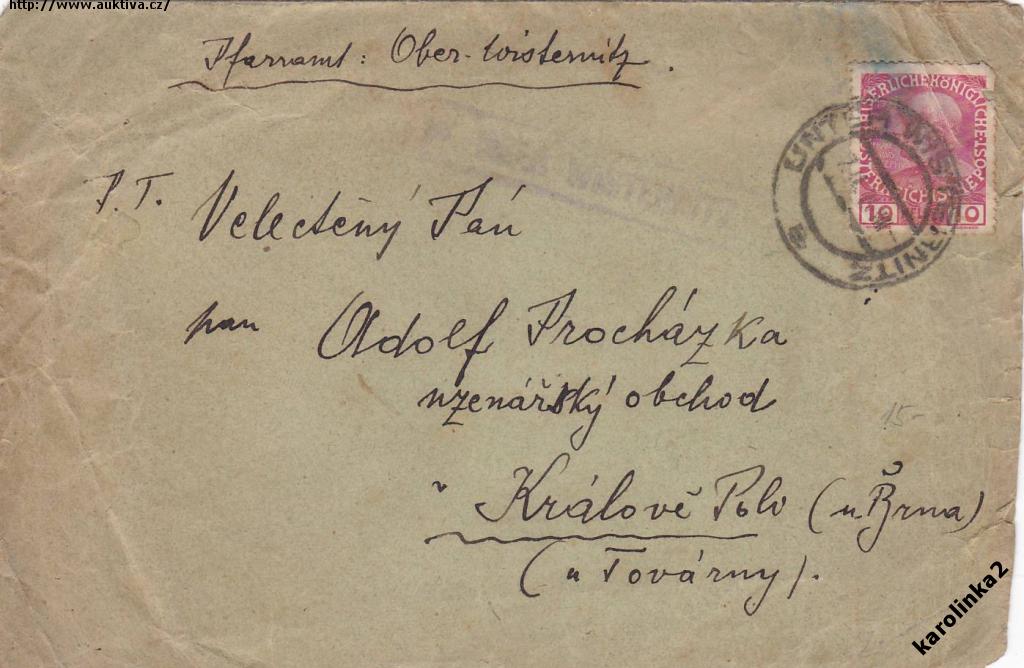 http://www.auktiva.cz/
Pfarramt: Ober-Wisternitz.
KAISERLICHE KÖNIGLICHE ÖST POST
10
UNTER WISTERNITZ
a
P.T. Velectěný Pán
pan Adolf Procházka
uzenářský obchod
v Králově Poli (u Brna)
(u Továrny).
15-
karolinka2